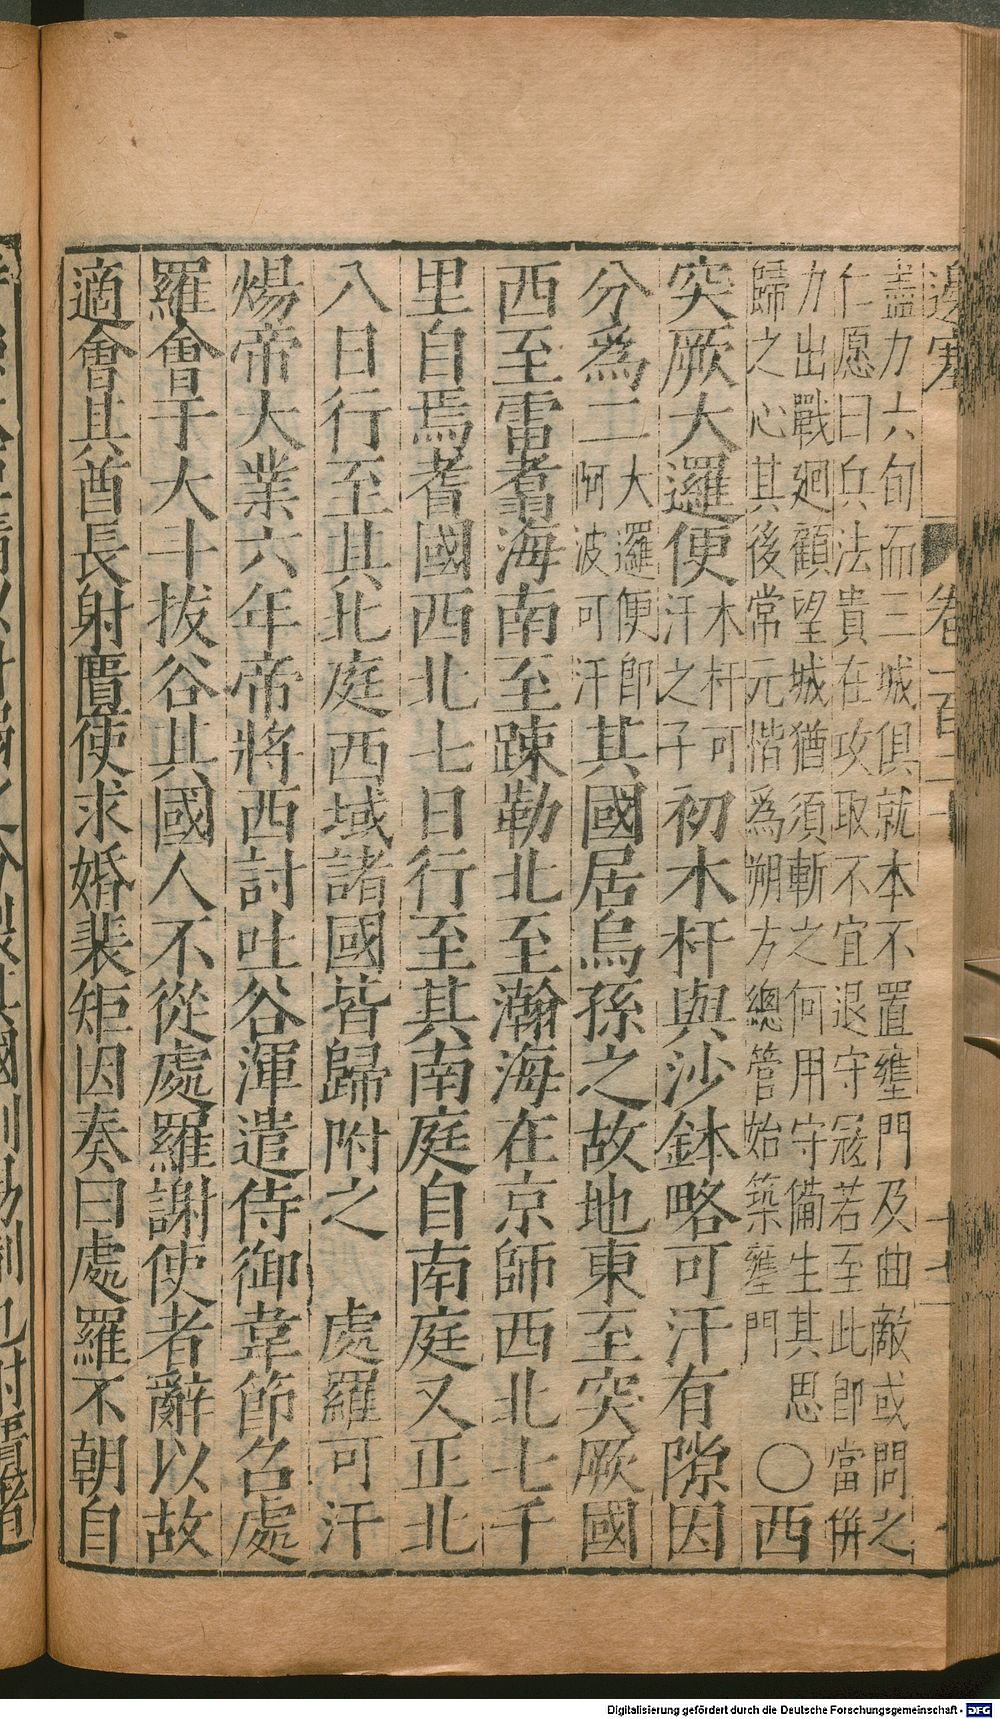 邊塞 卷一百三十 十七
盡力六旬而二城俱就本不置壅門及曲敵或問之
仁愿曰兵法貴在攻取不宜退守寇若至此卽當併
力出戰廻顧望城猶須斬之何用守備生其思
歸之心其後常元楷爲朔方總管始築壅門
〇西
突厥大邏便木杆可汗之子初木杆與沙鉢略可汗有隙因
分爲二大邏便卽阿波可汗其國居烏孫之故地東至突厥國
西至雷翥海南至踈勒北至瀚海在京師西北七千
里自焉耆國西北七日行至其南庭自南庭又正北
八日行至其北庭西域諸國皆歸附之 處羅可汗
煬帝大業六年帝將西討吐谷渾遣侍御韋節名處
羅會于大斗拔谷其國人不從處羅謝使者辭以故
適會其酋長射匱使求婚裴矩因奏曰處羅不朝自
Digitalisierung gefördert durch die Deutsche Forschungsgemeinschaft - DFG